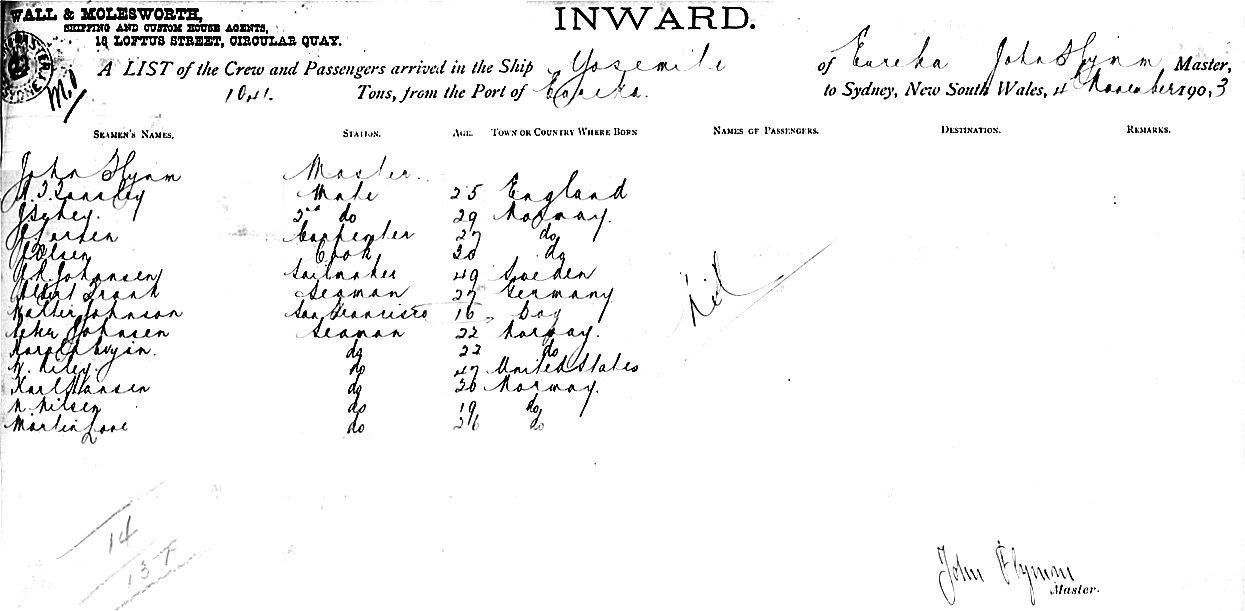 WALL & MOLESWORTH,
SHIPPING AND CUSTOM HOUSE AGENTS,
18 LOFTUS STREET, CIRCULAR QUAY.
INWARD.
A LIST of the Crew and Passengers arrived in the Ship Yosemite of Eureka John Flynn, Master,
1041 Tons, from the Port of Eureka. to Sydney, New South Wales, 4 November 1903
SEAMEN'S NAMES. STATION. AGE. TOWN OR COUNTRY WHERE BORN NAMES OF PASSENGERS. DESTINATION. REMARKS.
John Flynn Master
Mate 25 England
2nd do 29 Norway.
J Larsen Carpenter 27 do
Olsen Cook 20 do
Johansen Sailmaker 49 Sweden
Albert Frank Seaman 27 Germany
Walter Johnson San Francisco 16 Boy
Peter Johnsen Seaman 22 Norway.
do 22 do
Riley do 47 United States
Karl Hansen do 20 Norway.
N. Nilsen do 19 do
Martin do 26 do
Nil
14
137
John Flynn
Master.